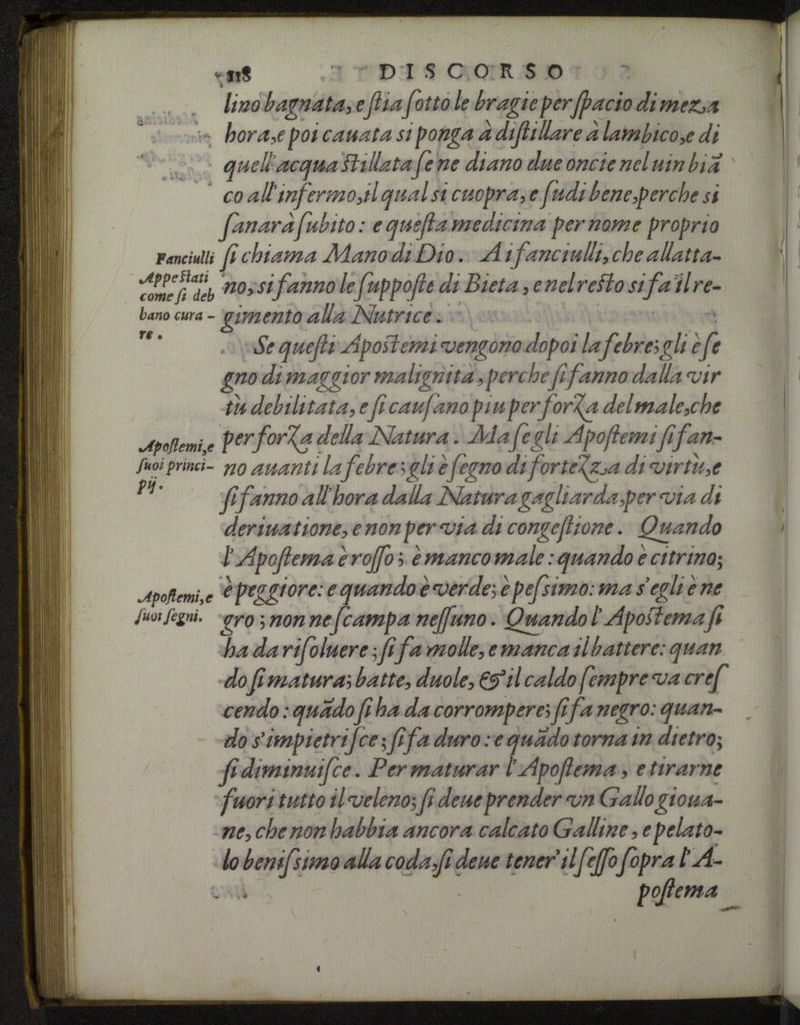 118 DISCORSO
lino bagnata, e ſtia ſotto le bragie per ſpacio di meza
hora, e poi cauata si ponga à diſtillare à lambico, e di
quell'acqua ſtillata ſe ne diano due oncie nel uin biã
co all'infermo, il qual si cuopra, e ſudi bene, perche si
ſanarà ſubito: e queſta medicina per nome proprio
ſi chiama Mano di Dio. A i fanciulli, che allatta-
no, si fanno le ſuppoſte di Bieta, e nel reſto si fa il re-
gimento alla Nutrice.
Fanciulli
Appeſtati
come ſi deb
bano cura-
re.
Se queſti Apoſtemi vengono dopoi la febre; gli è ſe
gno di maggior malignità, perche ſi fanno dalla vir
tù debilitata, e ſi cauſano piu per forza del male, che
per forza della Natura. Ma ſe gli Apoſtemi ſi fan-
no auanti la febre; gli è ſegno di fortezza di virtù, e
ſi fanno all'hora dalla Natura gagliarda, per via di
deriuatione, e non per via di congeſtione. Quando
l'Apoſtema è roſſo; è manco male: quando è citrino;
è peggiore: e quando è verde; è peſsimo: ma s'egli è ne
gro; non ne ſcampa neſſuno. Quando l'Apoſtema ſi
ha da riſoluere; ſi fa molle, e manca il battere: quan
do ſi matura; batte, duole, & il caldo ſempre va creſ
cendo: quãdo ſi ha da corrompere; ſi fa negro: quan-
do s'impietriſce; ſi fa duro: e quãdo torna in dietro;
ſi diminuiſce. Per maturar l'Apoſtema, e tirarne
fuori tutto il veleno; ſi deue prender vn Gallo gioua-
ne, che non habbia ancora calcato Galline, e pelato-
lo beniſsimo alla coda, ſi deue tener' il ſeſſo ſopra l'A-
poſtema
Apoſtemi, e
ſuoi princi-
pij.
Apoſtemi, e
ſuoi ſegni.